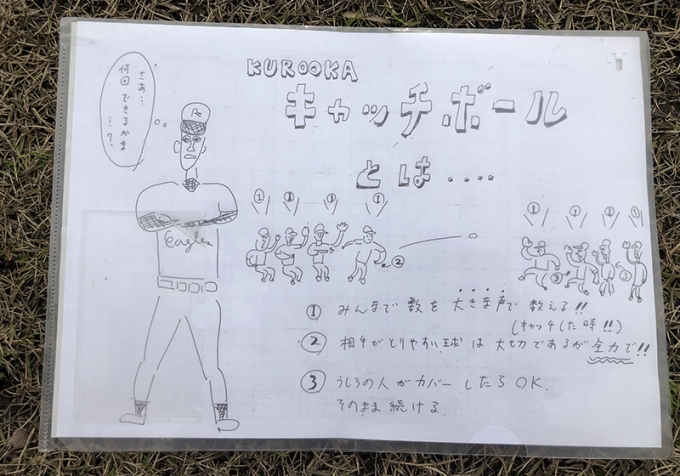 KUROOKA
キャッチボール
とは....
さあ...
何回できるかな
...?
Eagles
① ① ① ①
① ① ① ①
②
③
① みんなで数を大きな声で数える!!
(キャッチした時!!)
② 相手がとりやすい球は大切であるが全力で!!
③ うしろの人がカバーしたらOK.
そのまま続ける.